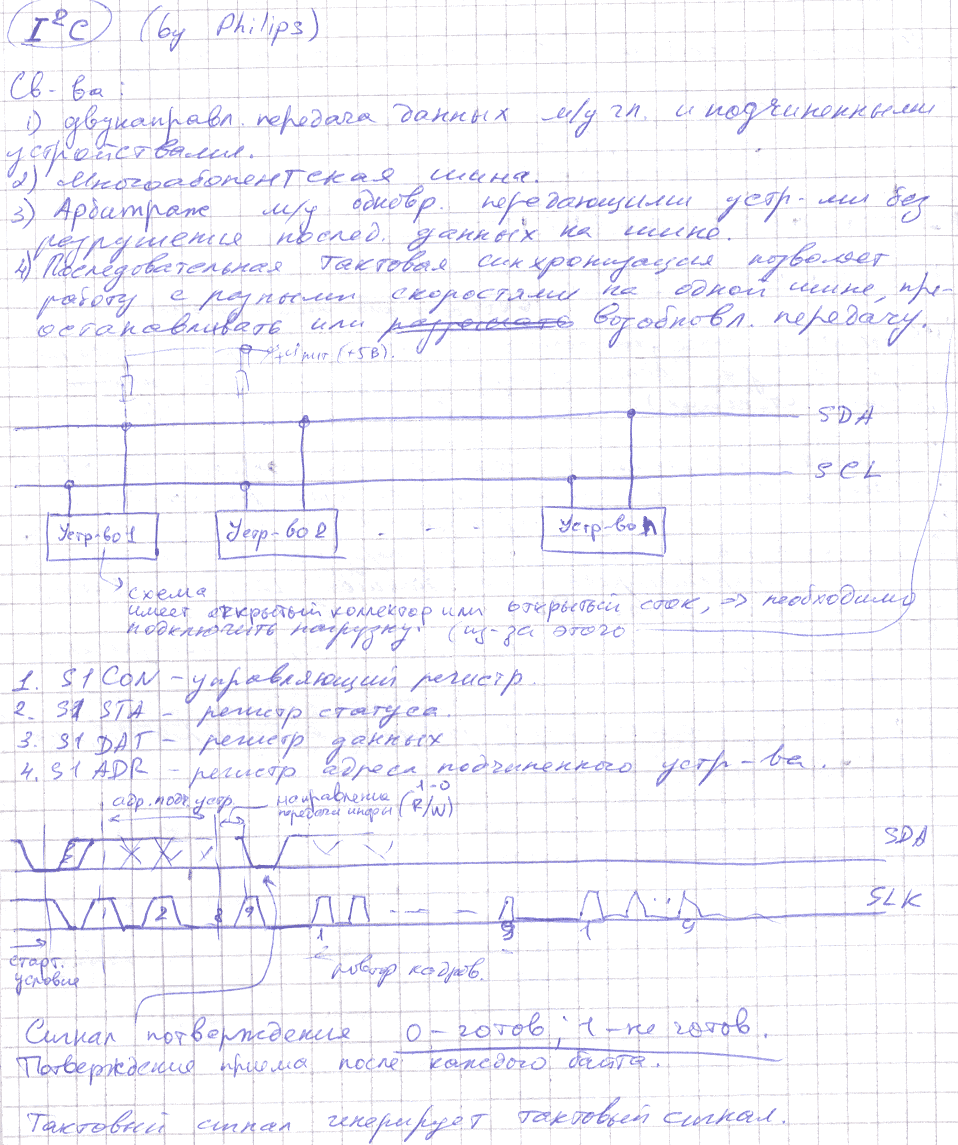 I²C (by Philips)
Св-ва:
1) двунаправл. передача данных м/у гл. и подчиненными
устройствами.
2) Многоабонентская шина.
3) Арбитраж м/у одновр. передающими устр-ми без
разрушения послед. данных на шине.
4) Последовательная тактовая синхронизация позволяет
работу с разными скоростями на одной шине, пре-
останавливать или разрешать возобновл. передачу.
+Uпит (+5В).
SDA
SCL
Устр-во 1
Устр-во 2
- - -
Устр-во n
схема
имеет открытый коллектор или открытый сток, => необходимо
подключить нагрузку. (из-за этого
1. S1 CON - управляющий регистр.
2. S1 STA - регистр статуса.
3. S1 DAT - регистр данных
4. S1 ADR - регистр адреса подчиненного устр-ва.
адр. подч. устр.
направление 1-0
передачи инфы (R/W)
SDA
1 2 8 9
SLK
1 9 1 9
старт.
условие
повтор кадров.
Сигнал потверждения 0 - готов; 1 - не готов.
Потверждение приема после каждого байта.
Тактовый сигнал генерирует тактовый сигнал.